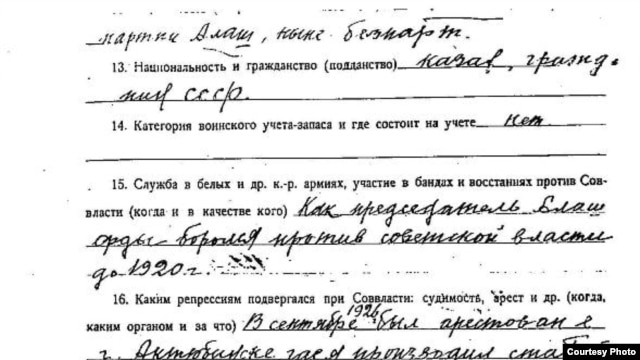 партии Алаш, ныне безпарт.
13. Национальность и гражданство (подданство) казак, гражд.
нин СССР.
14. Категория воинского учета-запаса и где состоит на учете нет
15. Служба в белых и др. к.-р. армиях, участие в бандах и восстаниях против Сов-
власти (когда и в качестве кого) Как председатель Алаш
орды боролся против советской власти
до 1920 г.
16. Каким репрессиям подвергался при Соввласти: судимость, арест и др. (когда,
1926
каким органом и за что) В сентябре был арестован в
г. Актюбинске где я производил
Courtesy Photo